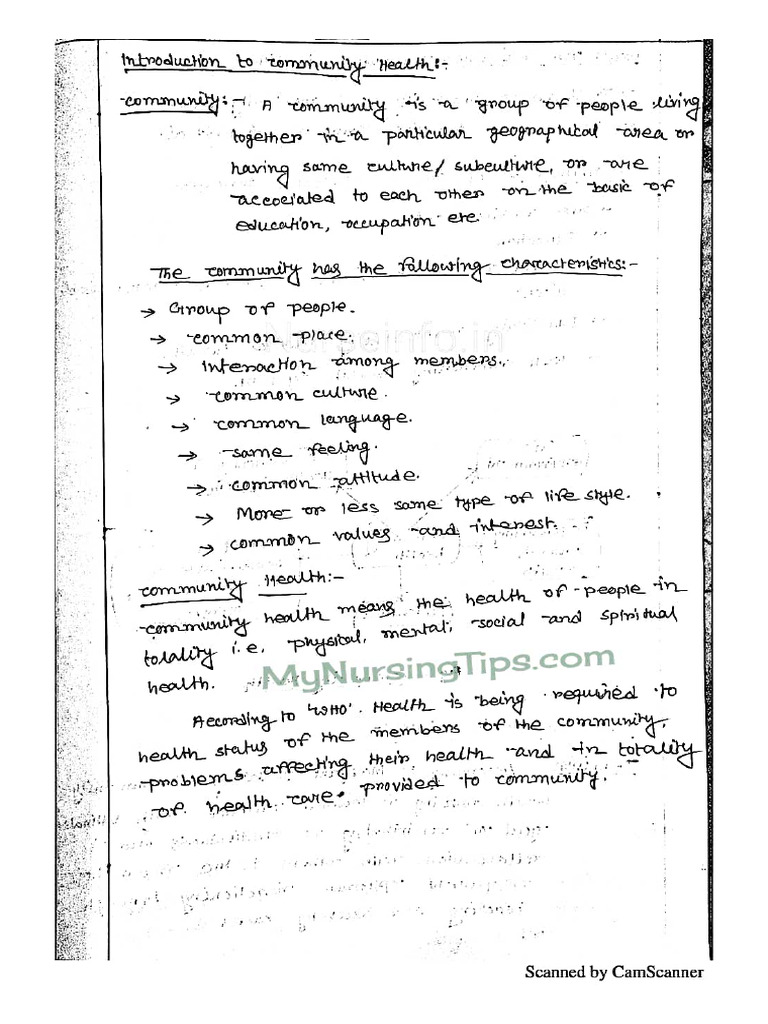 Introduction to community Health:-
community:- A community is a group of people living
together in a particular geographical area or
having same culture/subculture, or are
accociated to each other on the basic of
education, occupation etc.
The community has the following characteristics:-
→ Group of people.
→ common place.
Nurseinfo.in
→ Interaction among members.
→ common culture.
→ common language.
→ same feeling.
→ common attitude.
→ More or less same type of life style.
→ common values and interest.
community Health:-
community health means the health of people in
totality i.e. physical, mental, social and spiritual
health.
MyNursingTips.com
According to 'WHO'. Health is being required to
health status of the members of the community,
problems affecting their health and in totality
of health care provided to community.
Scanned by CamScanner